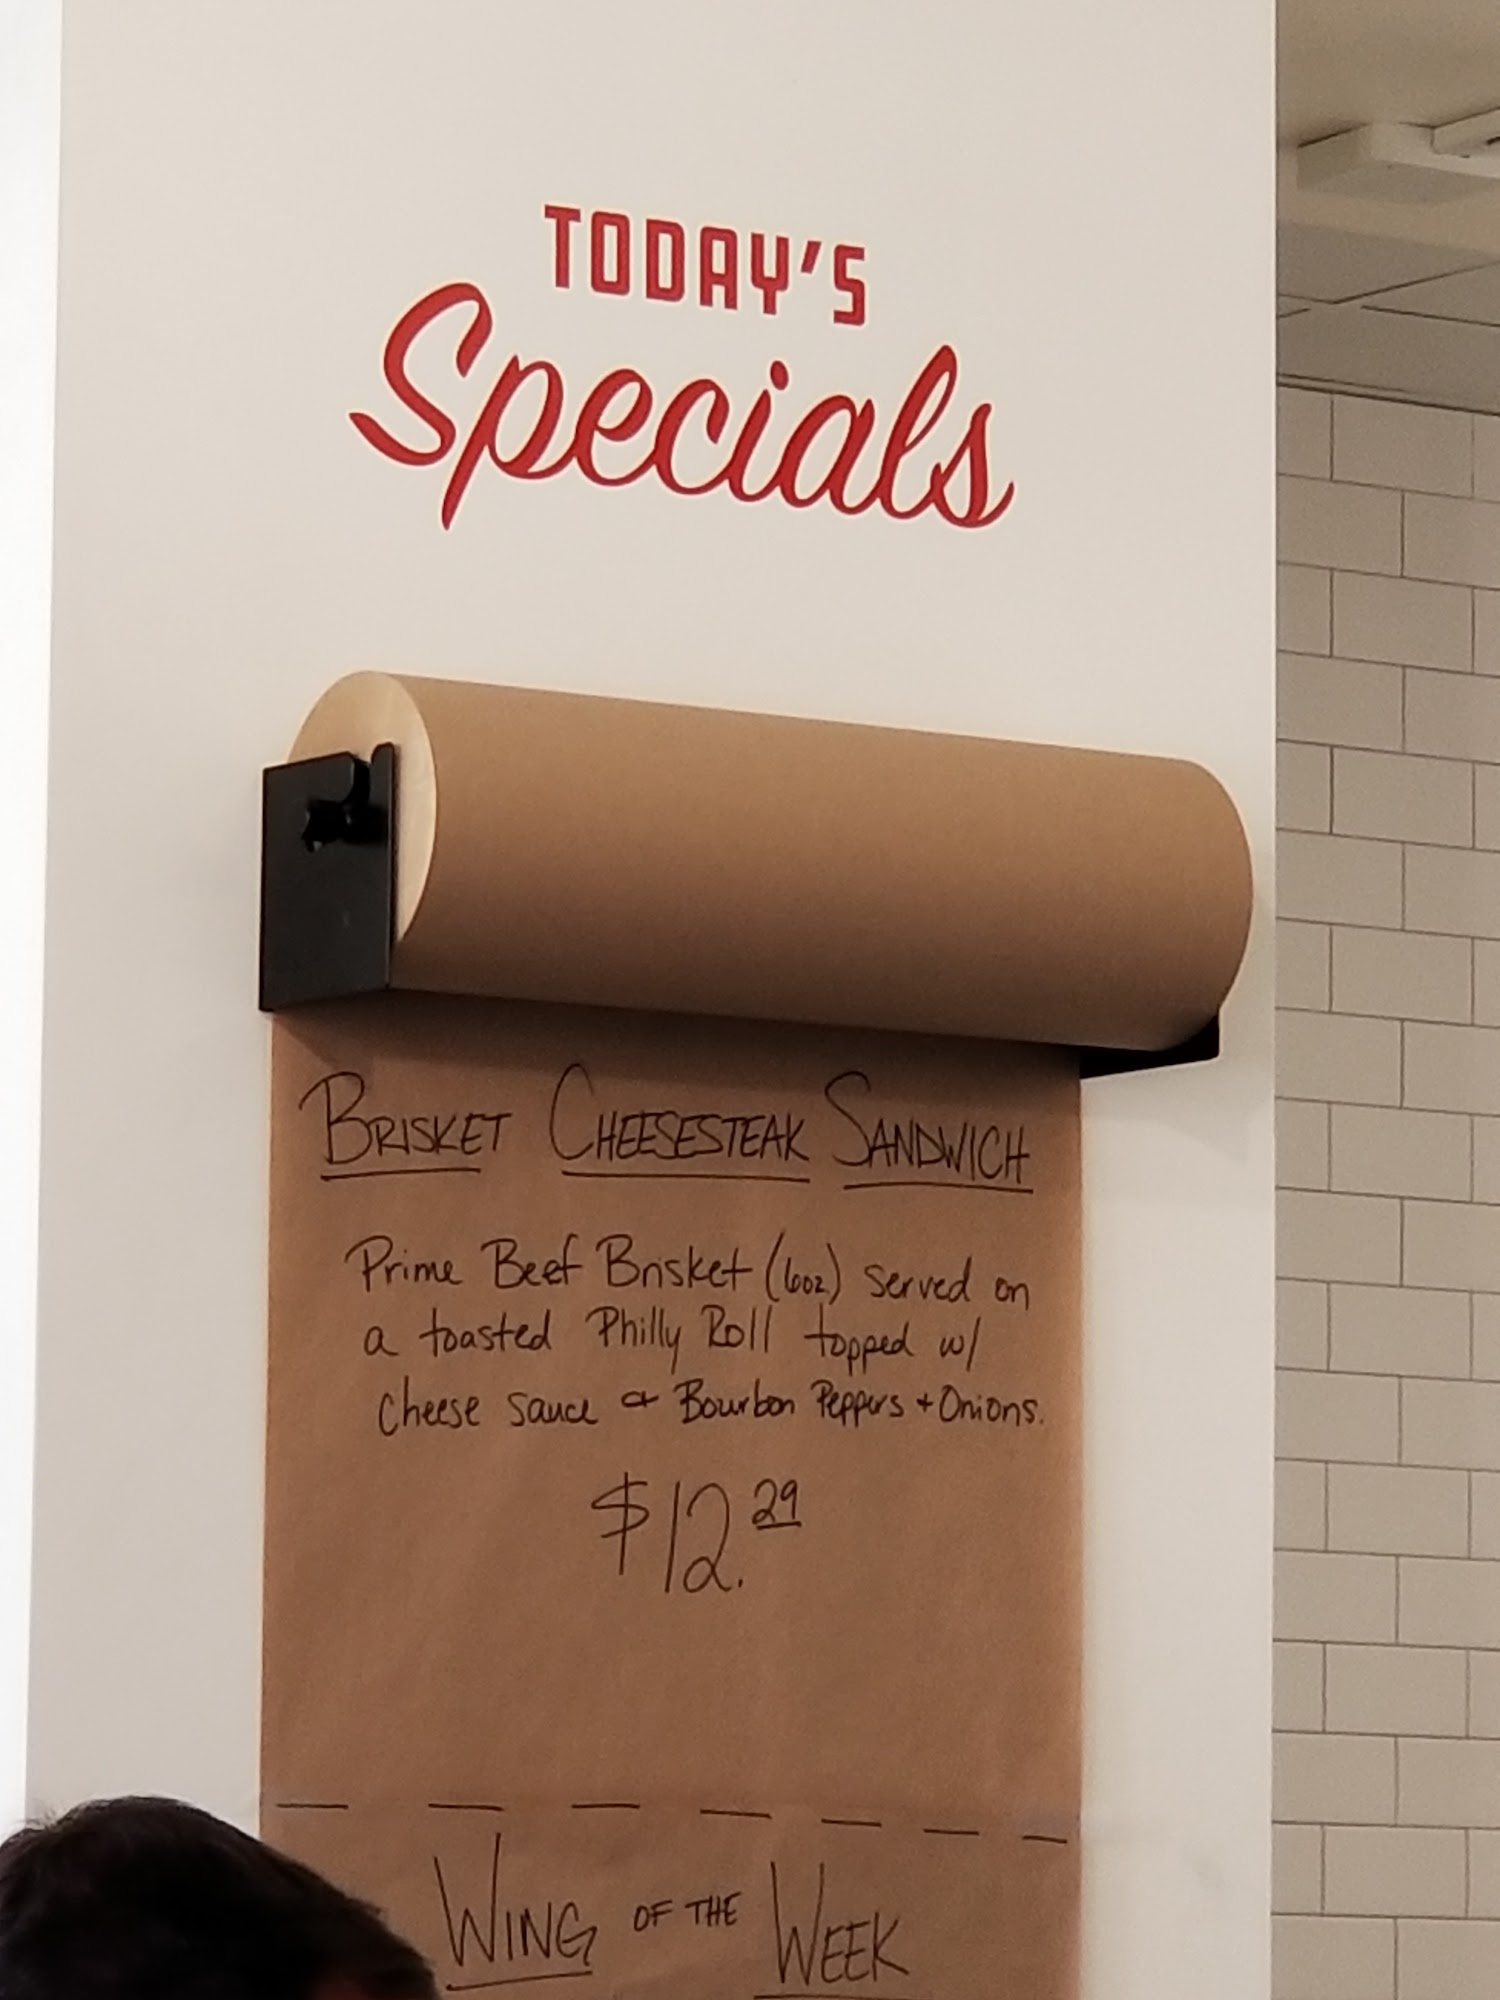 TODAY'S
Specials
BRISKET CHEESESTEAK SANDWICH
Prime Beef Brisket (6oz) served on
a toasted Philly Roll topped w/
cheese sauce & Bourbon Peppers + Onions.
$12.29
WING OF THE WEEK